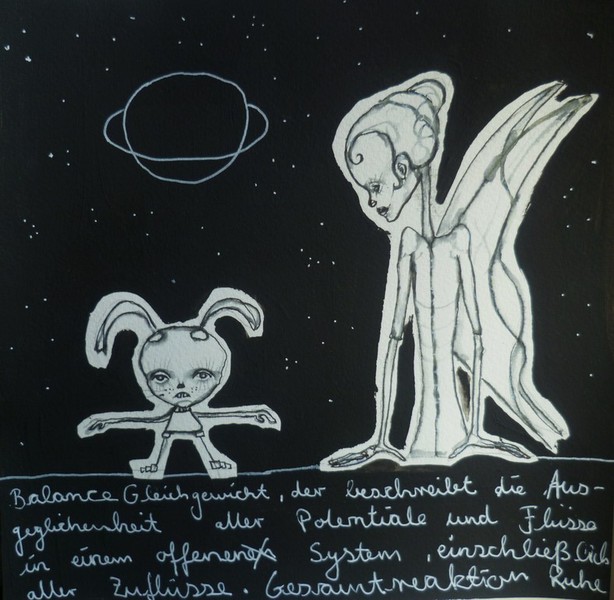 Balance Gleichgewicht, der beschreibt die Aus-
geglichenheit aller Potentiale und Flüsse
in einem offenen System, einschließlich
aller Zuflüsse. Gesamtreaktion Ruhe